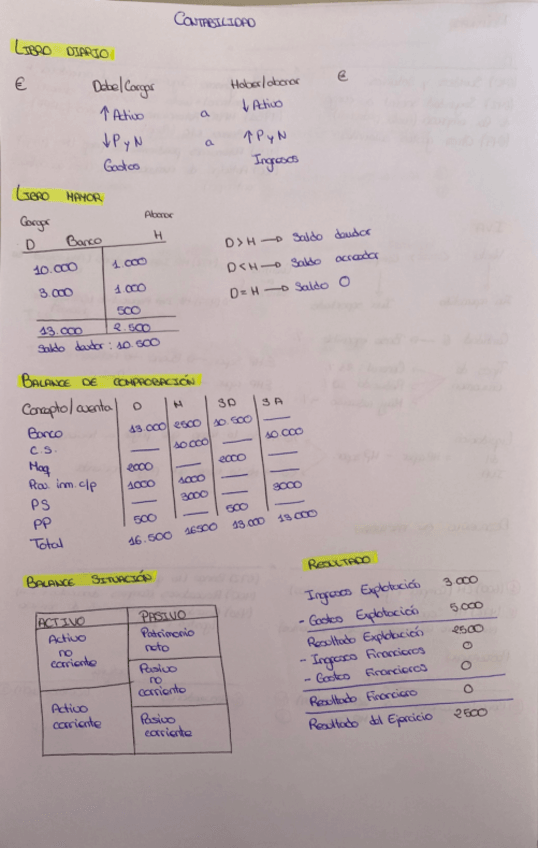 CONTABILIDAD
LIBRO DIARIO
€ Debe/Cargar Haber/abonar €
↑ Activo a ↓ Activo
↓ P y N a ↑ P y N
Gastos Ingresos
LIBRO MAYOR
Cargar Abonar
D Banco H
10.000 1.000
3.000 1.000
500
13.000 2.500
Saldo deudor: 10.500
D > H → Saldo deudor
D < H → Saldo acreedor
D = H → Saldo 0
BALANCE DE COMPROBACIÓN
Concepto/cuenta D H SD SA
Banco 13.000 2500 10.500 —
C.S. — 10000 — 10.000
Maq 2000 — 2000 —
Prov. inm. c/p 1000 1000 — —
PS — 3000 — 3000
PP 500 — 500 —
Total 16.500 16500 13.000 13.000
BALANCE SITUACIÓN
ACTIVO PASIVO
Activo no corriente
Patrimonio neto
Pasivo no corriente
Activo corriente
Pasivo corriente
RESULTADO
Ingresos Explotación 3.000
- Gastos Explotación 5.000
Resultado Explotación 2500
- Ingresos Financieros 0
- Gastos Financieros 0
Resultado Financiero 0
Resultado del Ejercicio 2500